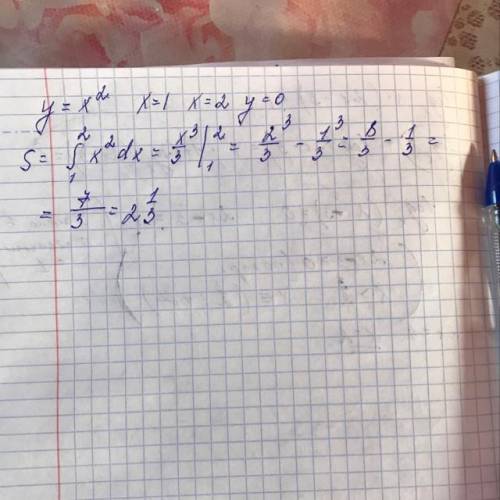 y = x² x=1 x=2 y=0
S = ∫₁² x² dx = x³/3 |₁² = 2³/3 - 1³/3 = 8/3 - 1/3 =
= 7/3 = 2 1/3